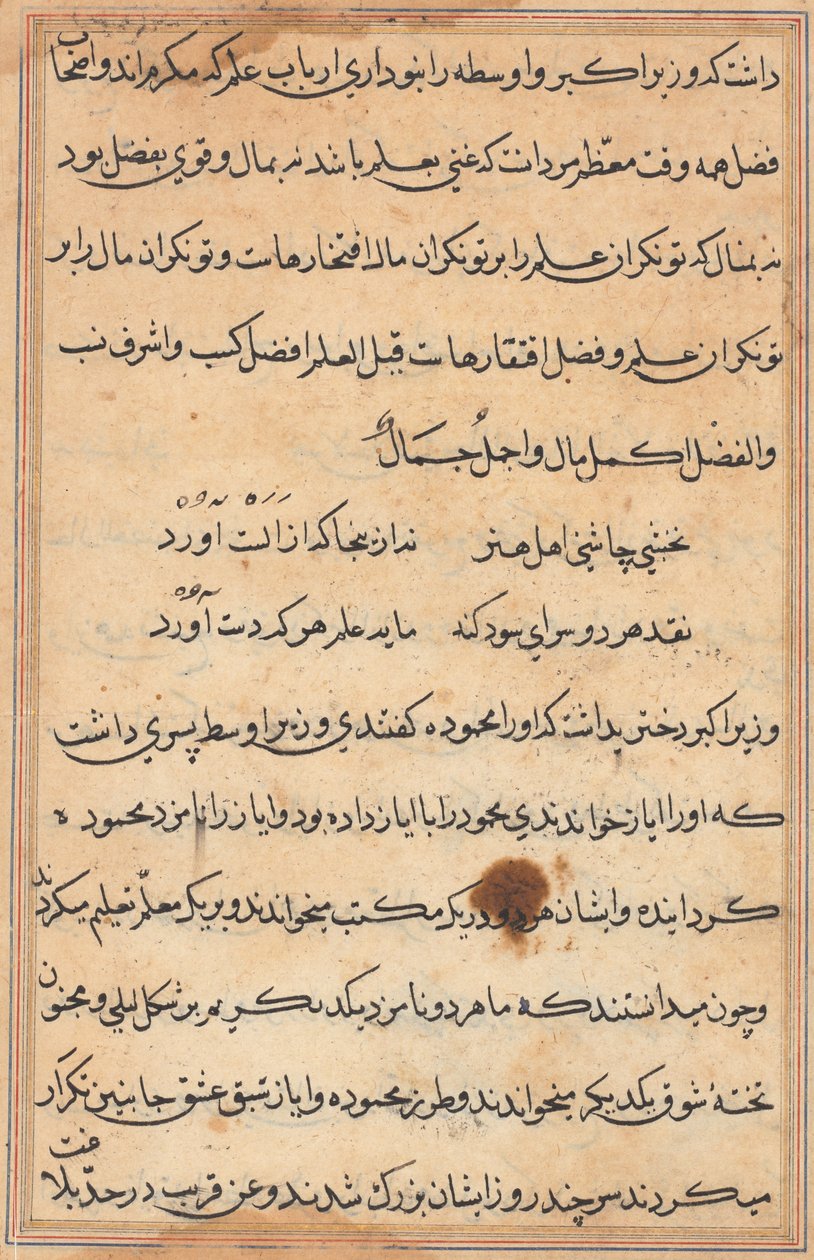 داشت که وزیر اکبر و اوسطه را بنوداری ارباب علم که مکرم اند و اصحاب
فضل همه وقت معظّم میداشت که غنی بعلم باشد نه بمال و قوی بفضل بود
نه بمنال که تونکران علم را بر تونکران مال افتخارهاست و تونکران مال را بر
تونکران علم و فضل افتقارهاست قیل العلم افضل کسب و اشرف نسب
والفضْل اکمل مال و اجملُ جَمَال
نخشبی چاشنی اهل هنر نه ازینجا که از الست آورد
نقد هر دو سرای سود کند مایه علم هر که دست آورد
وزیر اکبر دختری داشت که او را محموده کفتندی و زیر اوسط پسری داشت
که او را ایاز خواندندی محمود را با ایاز داده بود و ایاز را نامزد محموده
کردانیده و ایشان هر دو در یک مکتب میخواندند و بر یک معلّم تعلیم میکردند
و چون میدانستند که ما هر دو نامزد یکدیکریم بر شکل لیلی و مجنون
تختهٔ شوق یکدیکر میخواندند و طرز محموده و ایاز سبق عشق جانبین تکرار
میکردند سر چند روز ایشان بزرک شدند و عن قریب در حدّ بلاغت